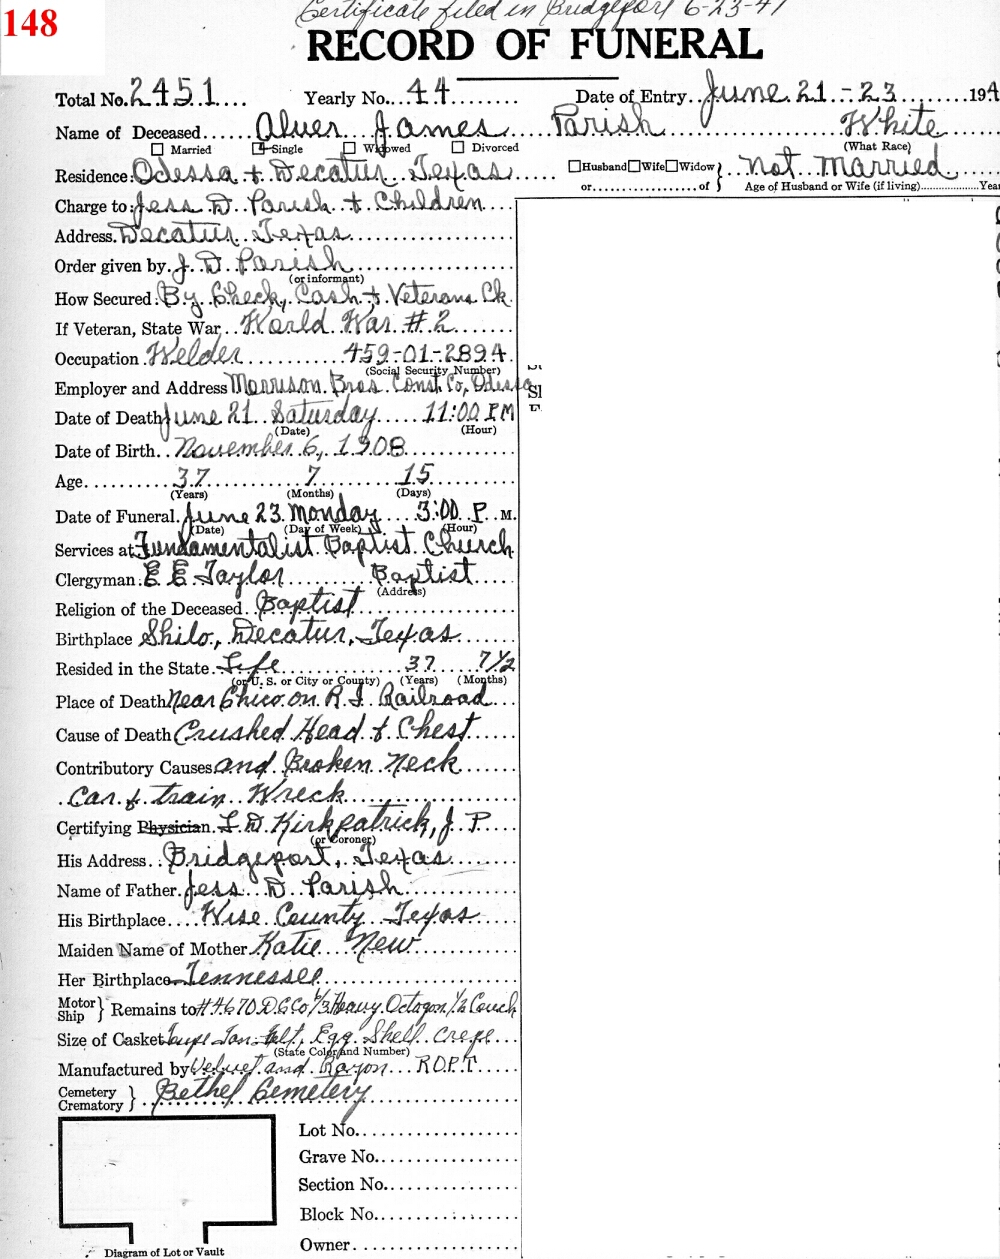 Certificate filed in Bridgeport 6-23-47
148
RECORD OF FUNERAL
Total No. 2451 Yearly No. 44 Date of Entry June 21-23 194
Name of Deceased Alver James Parish White
Married Single Widowed Divorced (What Race)
Residence: Odessa + Decatur Texas Husband Wife Widow } Not Married
or of Age of Husband or Wife (if living) Yea
Charge to: Jess D. Parish + Children
Address. Decatur Texas
Order given by. J. D. Parish
(or informant)
How Secured: By Check, Cash + Veterans Ck.
If Veteran, State War World War #2
Occupation Welder 459-01-2894
(Social Security Number)
Employer and Address Morrison Bros. Const. Co, Odessa
Date of Death June 21 Saturday 11:00 PM
(Date) (Hour)
Date of Birth November 6, 1908
Age 37 7 15
(Years) (Months) (Days)
Date of Funeral. June 23 Monday 3:00 P. M.
(Date) (Day of Week) (Hour)
Services at Fundamentalist Baptist Church
Clergyman E E Taylor Baptist
(Address)
Religion of the Deceased Baptist
Birthplace Shilo, Decatur, Texas
Resided in the State Life 37 7 1/2
(or U. S. or City or County) (Years) (Months)
Place of Death Near Chico on R.I. Railroad
Cause of Death Crushed Head + Chest
Contributory Causes and Broken Neck
Car & train Wreck
Certifying Physician. L. D. Kirkpatrick, J. P.
(or Coroner)
His Address Bridgeport, Texas
Name of Father Jess D. Parish
His Birthplace Wise County Texas
Maiden Name of Mother Katie New
Her Birthplace Tennessee
Motor Ship } Remains to #4670 D.C.Co 6/3 Heavy Octagon 1/2 Couch
Size of Casket Taupe Tan Egg Shell Crepe
(State Color and Number)
Manufactured by Velvet and Rayon R.O.P.T.
Cemetery Crematory } Bethel Cemetery
Lot No.
Grave No.
Section No.
Block No.
Owner
Diagram of Lot or Vault